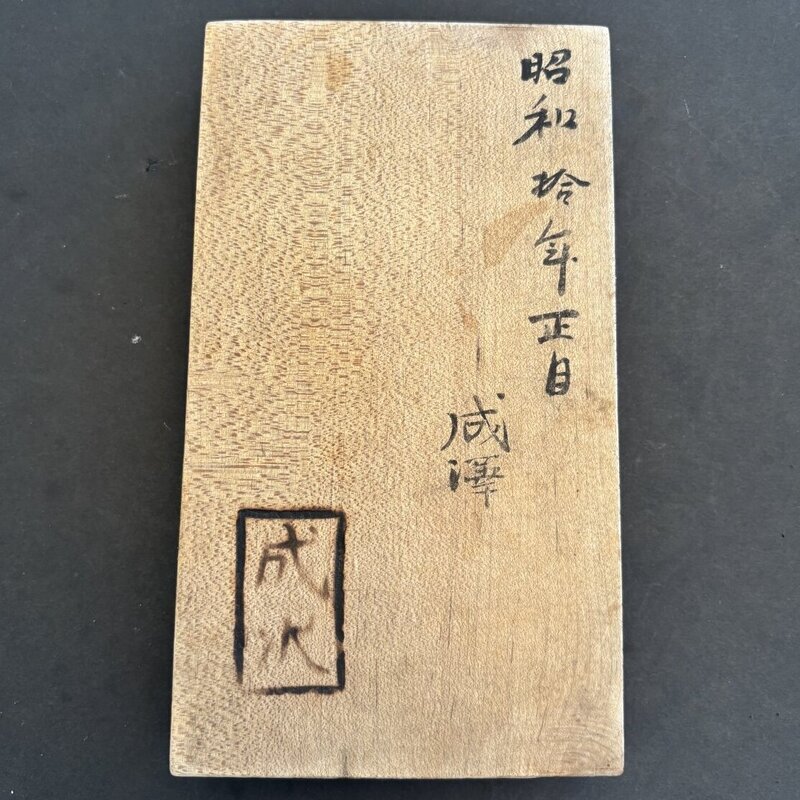 昭和拾年正月
成澤
成沢